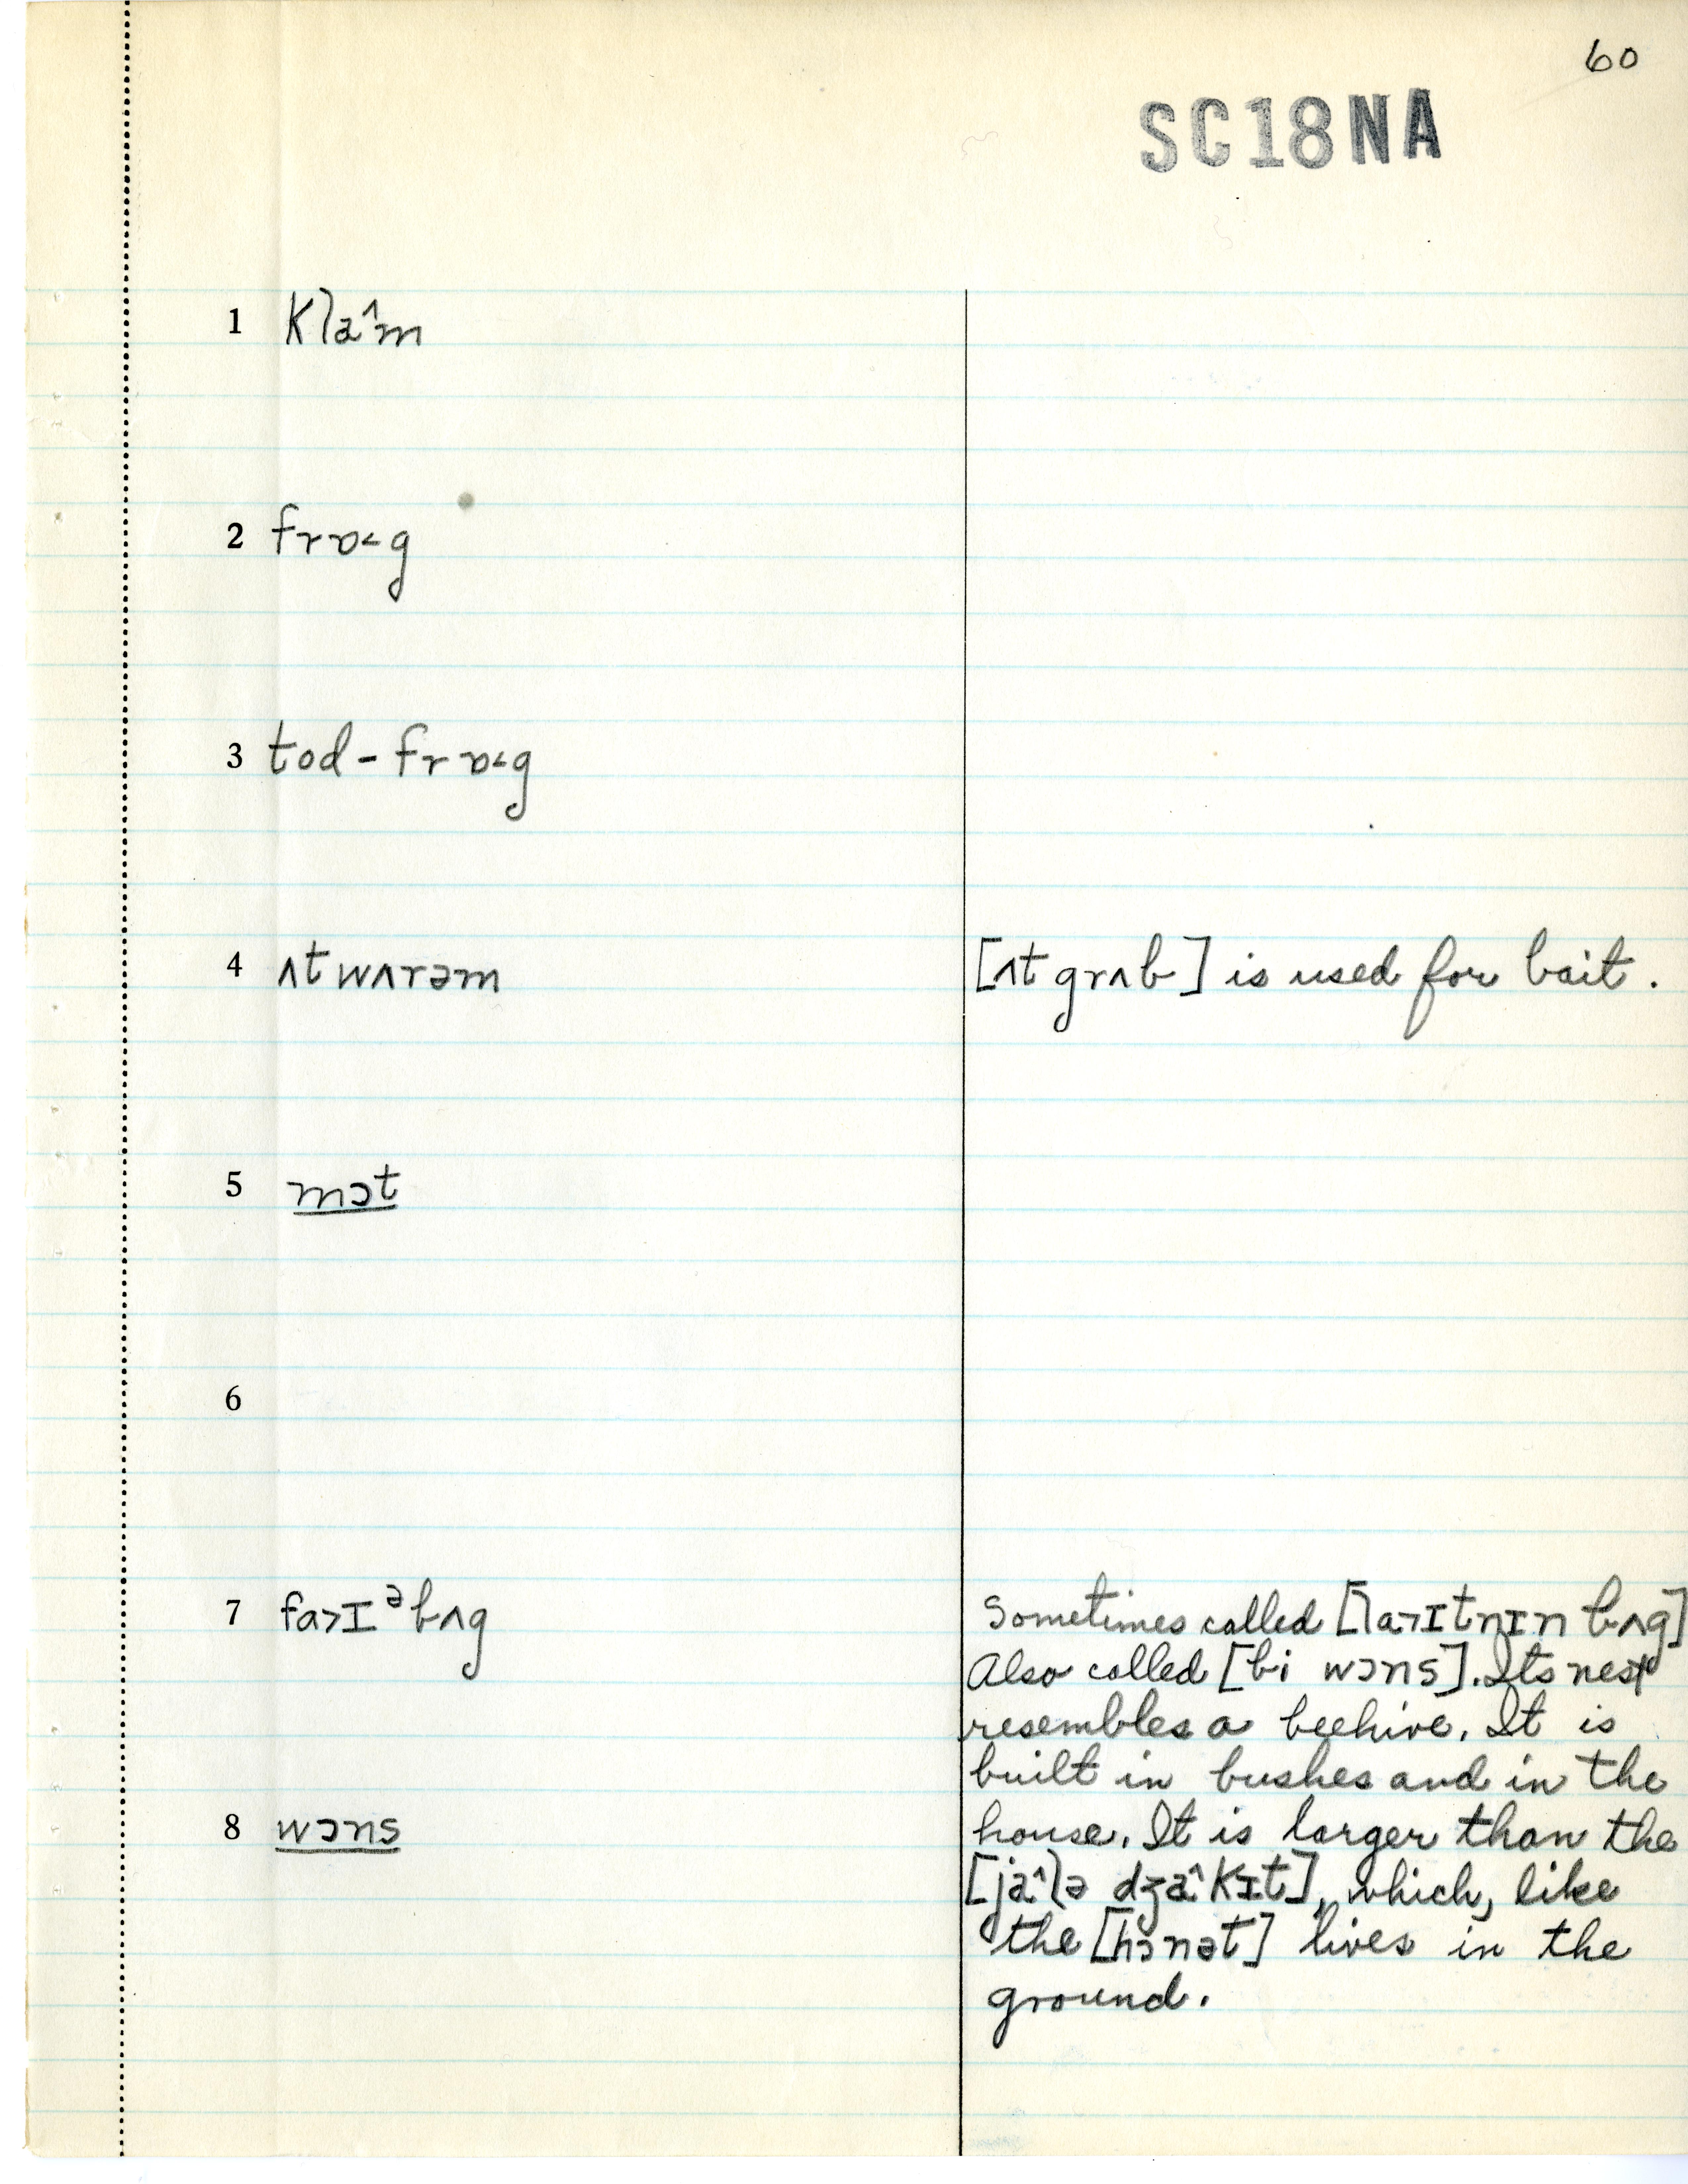 60
SC18NA
1 klaˆm
2 frɒ˂g
3 tod-frɒ˂g
4 ʌtwʌrəm
[ʌt grʌb] is used for bait.
5 mɔt
6
7 fa˃ɪᵊbʌg
Sometimes called [la˃ɪtnɪn bʌg]
Also called [bi wɔns]. Its nest
resembles a beehive. It is
built in bushes and in the
8 wɔns
house. It is larger than the
[jaˆlə dʒaˆkɪt], which, like
the [hɔnət] lives in the
ground.